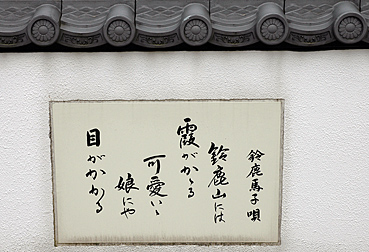 鈴鹿馬子唄
鈴鹿山には
霞がかゝる
可愛いゝ
娘にや
目がかゝる